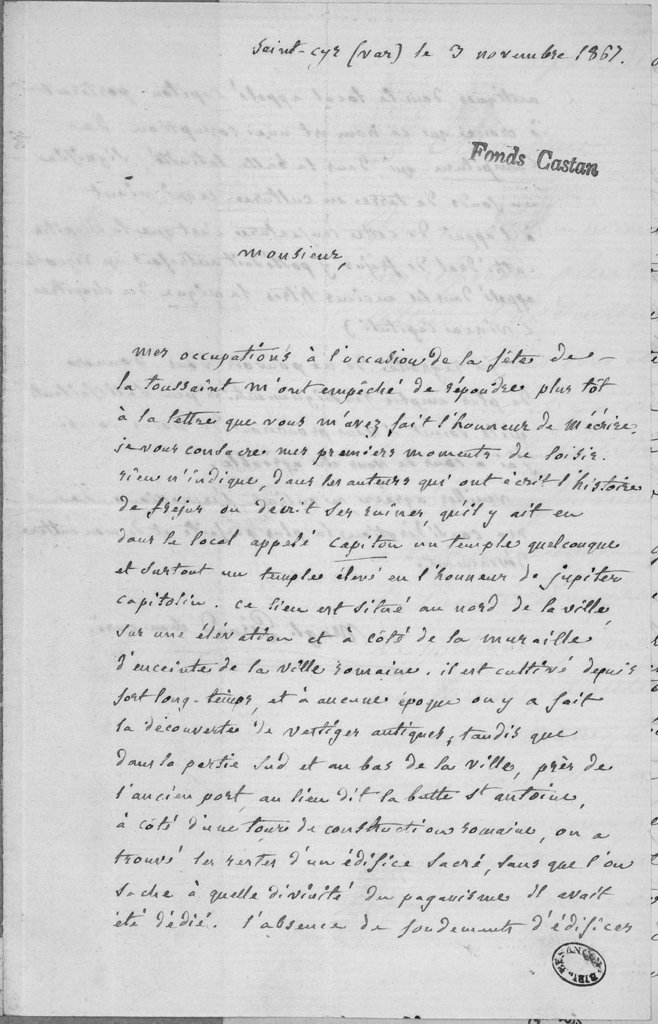 Saint-Cyr (Var) le 3 novembre 1867.
Fonds Castan
Monsieur,
Mes occupations à l'occasion de la fête de
la toussaint m'ont empêché de répondre plus tôt
à la lettre que vous m'avez fait l'honneur de m'écrire.
je vous consacre mes premiers moments de loisir.
rien n'indique, dans les auteurs qui ont écrit l'histoire
de fréjus ou décrit ses ruines qu'il y ait eu
dans le local appelé capitou un temple quelconque
et surtout un temple élevé en l'honneur de jupiter
capitolin. ce lieu est situé au nord de la ville,
sur une élévation et à côté de la muraille
d'enceinte de la ville romaine. il est cultivé depuis
fort long-temps, et à aucune époque on y a fait
la découverte de vestiges antiques, tandis que
dans la partie sud et au bas de la ville, près de
l'ancien port, au lieu dit la butte st antoine,
à côté d'une tour de construction romaine, on a
trouvé les restes d'un édifice sacré, sans que l'on
sache à quelle divinité du paganisme il avait
été dédié. l'absence de fondements d'édifices